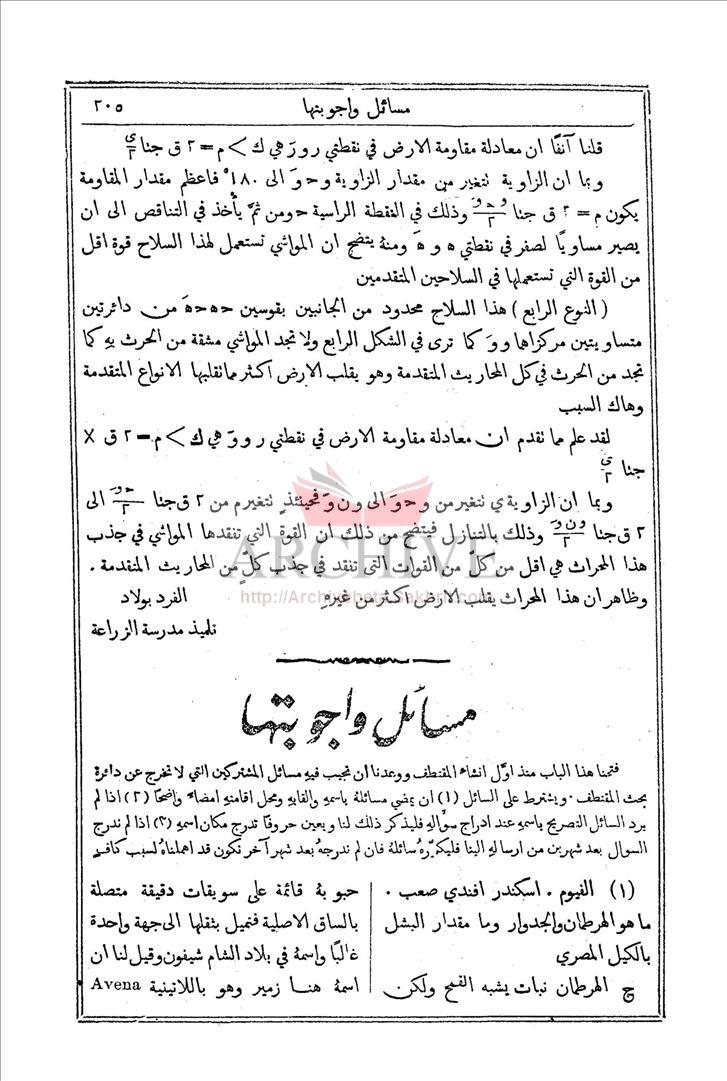 مسائل واجوبتها ٢٠٥
قلنا آنفًا ان معادلة مقاومة الارض في نقطتي رورَ هي ك > م = ٢ ق جتا ي/٢
وبما ان الزاوية تتغير من مقدار الزاوية وحوَ الى ١٨٠° فاعظم مقدار المقاومة
يكون م = ٢ ق جتا وحوَ/٢ وذلك في النقطة الراسية ح ومن ثمَّ يأخذ في التناقص الى ان
يصير مساويًا لصفر في نقطتي ه و هَ ومنهُ يتضح ان المواشي تستعمل لهذا السلاح قوة اقل
من القوة التي تستعملها في السلاحين المتقدمين
(النوع الرابع) هذا السلاح محدود من الجانبين بقوسين حه حهَ من دائرتين
متساويتين مركزاها ووَ كما ترى في الشكل الرابع ولا تجد المواشي مشقة من الحرث به كما
تجد من الحرث في كل المحاريث المتقدمة وهو يقلب الارض اكثر مما تقلبها الانواع المتقدمة
وهاك السبب
لقد علم مما تقدم ان معادلة مقاومة الارض في نقطتي ر ورَ هي ك > م = ٢ ق ×
جتا ي/٢
وبما ان الزاوية ي تتغير من وحوَ الى ون وَ فحينئذٍ تتغير م من ٢ ق جتا وحوَ/٢ الى
٢ ق جتا ون وَ/٢ وذلك بالتنازل فيتضح من ذلك ان القوة التي تنقدها المواشي في جذب
هذا المحراث هي اقل من كل من القوات التي تنقد في جذب كلٍّ من المحاريث المتقدمة .
وظاهر ان هذا المحراث يقلب الارض اكثر من غيره الفرد بولاد
تلميذ مدرسة الزراعة
ARCHIVE
مسائل واجوبتها
فتحنا هذا الباب منذ اول انشاء المقتطف ووعدنا ان نجيب فيه مسائل المشتركين التي لا تخرج عن دائرة
بحث المقتطف . ويشترط على السائل (١) ان يمضي مسائله باسمه والقابه ومحل اقامته امضاءً واضحًا (٢) اذا لم
يرد السائل التصريح باسمه عند ادراج سؤاله فليذكر ذلك لنا ويعين حروفًا تدرج مكان اسمه (٣) اذا لم ندرج
السؤال بعد شهرين من ارساله الينا فليكرّره سائله فان لم ندرجه بعد شهر آخر نكون قد اهملناه لسبب كافٍ
(١) الفيوم . اسكندر افندي صعب .
ما هو الهرطمان والجدوار وما مقدار البشل
بالكيل المصري
ج الهرطمان نبات يشبه القمح ولكن
حبوبهُ قائمة على سويقات دقيقة متصلة
بالساق الاصلية فتميل بثقلها الى جهة واحدة
غالبًا واسمهُ في بلاد الشام شيفون وقيل لنا ان
اسمهُ هنا زمير وهو باللاتينية Avena